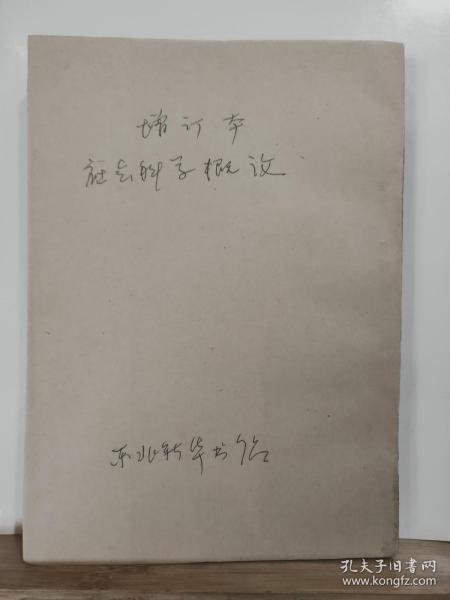 增订本
社会科学概议
东北新华书馆
孔夫子旧书网
www.kongfz.com